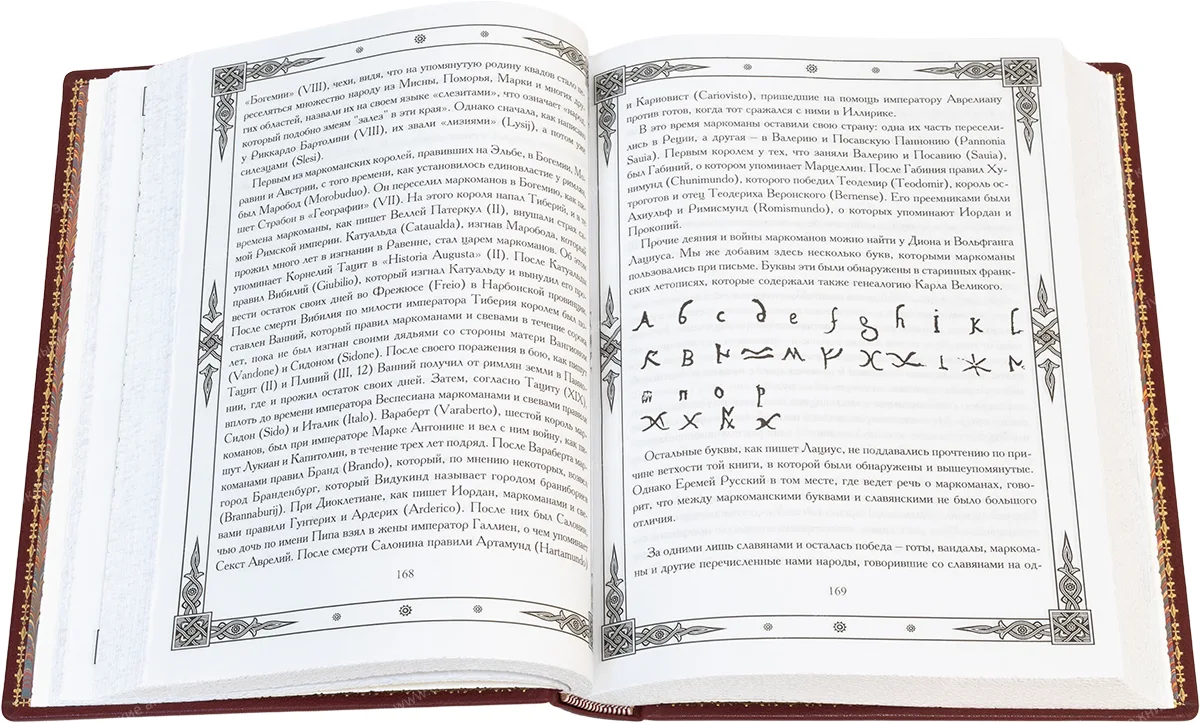 «Богемии» (VIII), чехи, видя, что на упомянутую родину квадов стало
реселяться множество народу из Мисны, Поморья, Марки и многих дру-
гих областей, назвали их на своем языке «слезитами», что означает «народ,
который подобно змеям "залез" в эти края». Однако сначала, как написано
у Риккардо Бартолини (VIII), их звали «лизиями» (Lysij), а потом уже
силезцами (Slesi).
Первым из маркоманских королей, правивших на Эльбе, в Богемии, Мо-
равии и Австрии, с того времени, как установилось единовластие у римлян,
был Маробод (Morobuduo). Он переселил маркоманов в Богемию, как пи-
шет Страбон в «Географии» (VII). На этого короля напал Тиберий, и в те
времена маркоманы, как пишет Веллей Патеркул (II), внушали страх са-
мой Римской империи. Катуальда (Cataualda), изгнав Маробода, который
прожил много лет в изгнании в Равенне, стал царем маркоманов. Об этом
упоминает Корнелий Тацит в «Historia Augusta» (II). После Катуальды
правил Вибилий (Giubilio), который изгнал Катуальду и вынудил его про-
вести остаток своих дней во Фрежюсе (Freio) в Нарбонской провинции.
После смерти Вибилия по милости императора Тиберия королем был по-
ставлен Ванний, который правил маркоманами и свевами в течение сорока
лет, пока не был изгнан своими дядьями со стороны матери Вангионом
(Vandone) и Сидоном (Sidone). После своего поражения в бою, как пишут
Тацит (II) и Плиний (III, 12) Ванний получил от римлян земли в Панно-
нии, где и прожил остаток своих дней. Затем, согласно Тациту (XIX),
вплоть до времени императора Веспесиана маркоманами и свевами правили
Сидон (Sido) и Италик (Italo). Вараберт (Varaberto), шестой король мар-
команов, был при императоре Марке Антонине и вел с ним войну, как пи-
шут Лукиан и Капитолин, в течение трех лет подряд. После Вараберта мар-
команами правил Бранд (Brando), который, по мнению некоторых, возвел
город Бранденбург, который Видукинд называет городом браниборнев
(Brannaburij). При Диоклетиане, как пишет Иордан, маркоманами и све-
вами правили Гунтерих и Ардерих (Arderico). После них был Салонин,
чью дочь по имени Пипа взял в жены император Галлиен, о чем упоминает
Секст Аврелий. После смерти Салонина правили Артамунд (Hartamundo)
168
и Кариовист (Cariovisto), пришедшие на помощь императору Аврелиану
против готов, когда тот сражался с ними в Иллирике.
В это время маркоманы оставили свою страну: одна их часть пересели-
лись в Реции, а другая – в Валерию и Посавскую Паннонию (Pannonia
Sauia). Первым королем у тех, что заняли Валерию и Посавию (Sauia),
был Габиний, о котором упоминает Марцеллин. После Габиния правил Ху-
нимунд (Chunimundo), которого победил Теодемир (Teodomir), король ос-
троготов и отец Теодериха Веронского (Bernense). Его преемниками были
Ахиульф и Римисмунд (Romismundo), о которых упоминают Иордан и
Прокопий.
Прочие деяния и войны маркоманов можно найти у Диона и Вольфганга
Лациуса. Мы же добавим здесь несколько букв, которыми маркоманы
пользовались при письме. Буквы эти были обнаружены в старинных франк-
ских летописях, которые содержали также генеалогию Карла Великого.
A b c d e f g h i k l
m n o p
Остальные буквы, как пишет Лациус, не поддавались прочтению по при-
чине ветхости той книги, в которой были обнаружены и вышеупомянутые.
Однако Еремей Русский в том месте, где ведет речь о маркоманах, гово-
рит, что между маркоманскими буквами и славянскими не было большого
отличия.
За одними лишь славянами и осталась победа – готы, вандалы, маркома-
ны и другие перечисленные нами народы, говорившие со славянами на од-
169